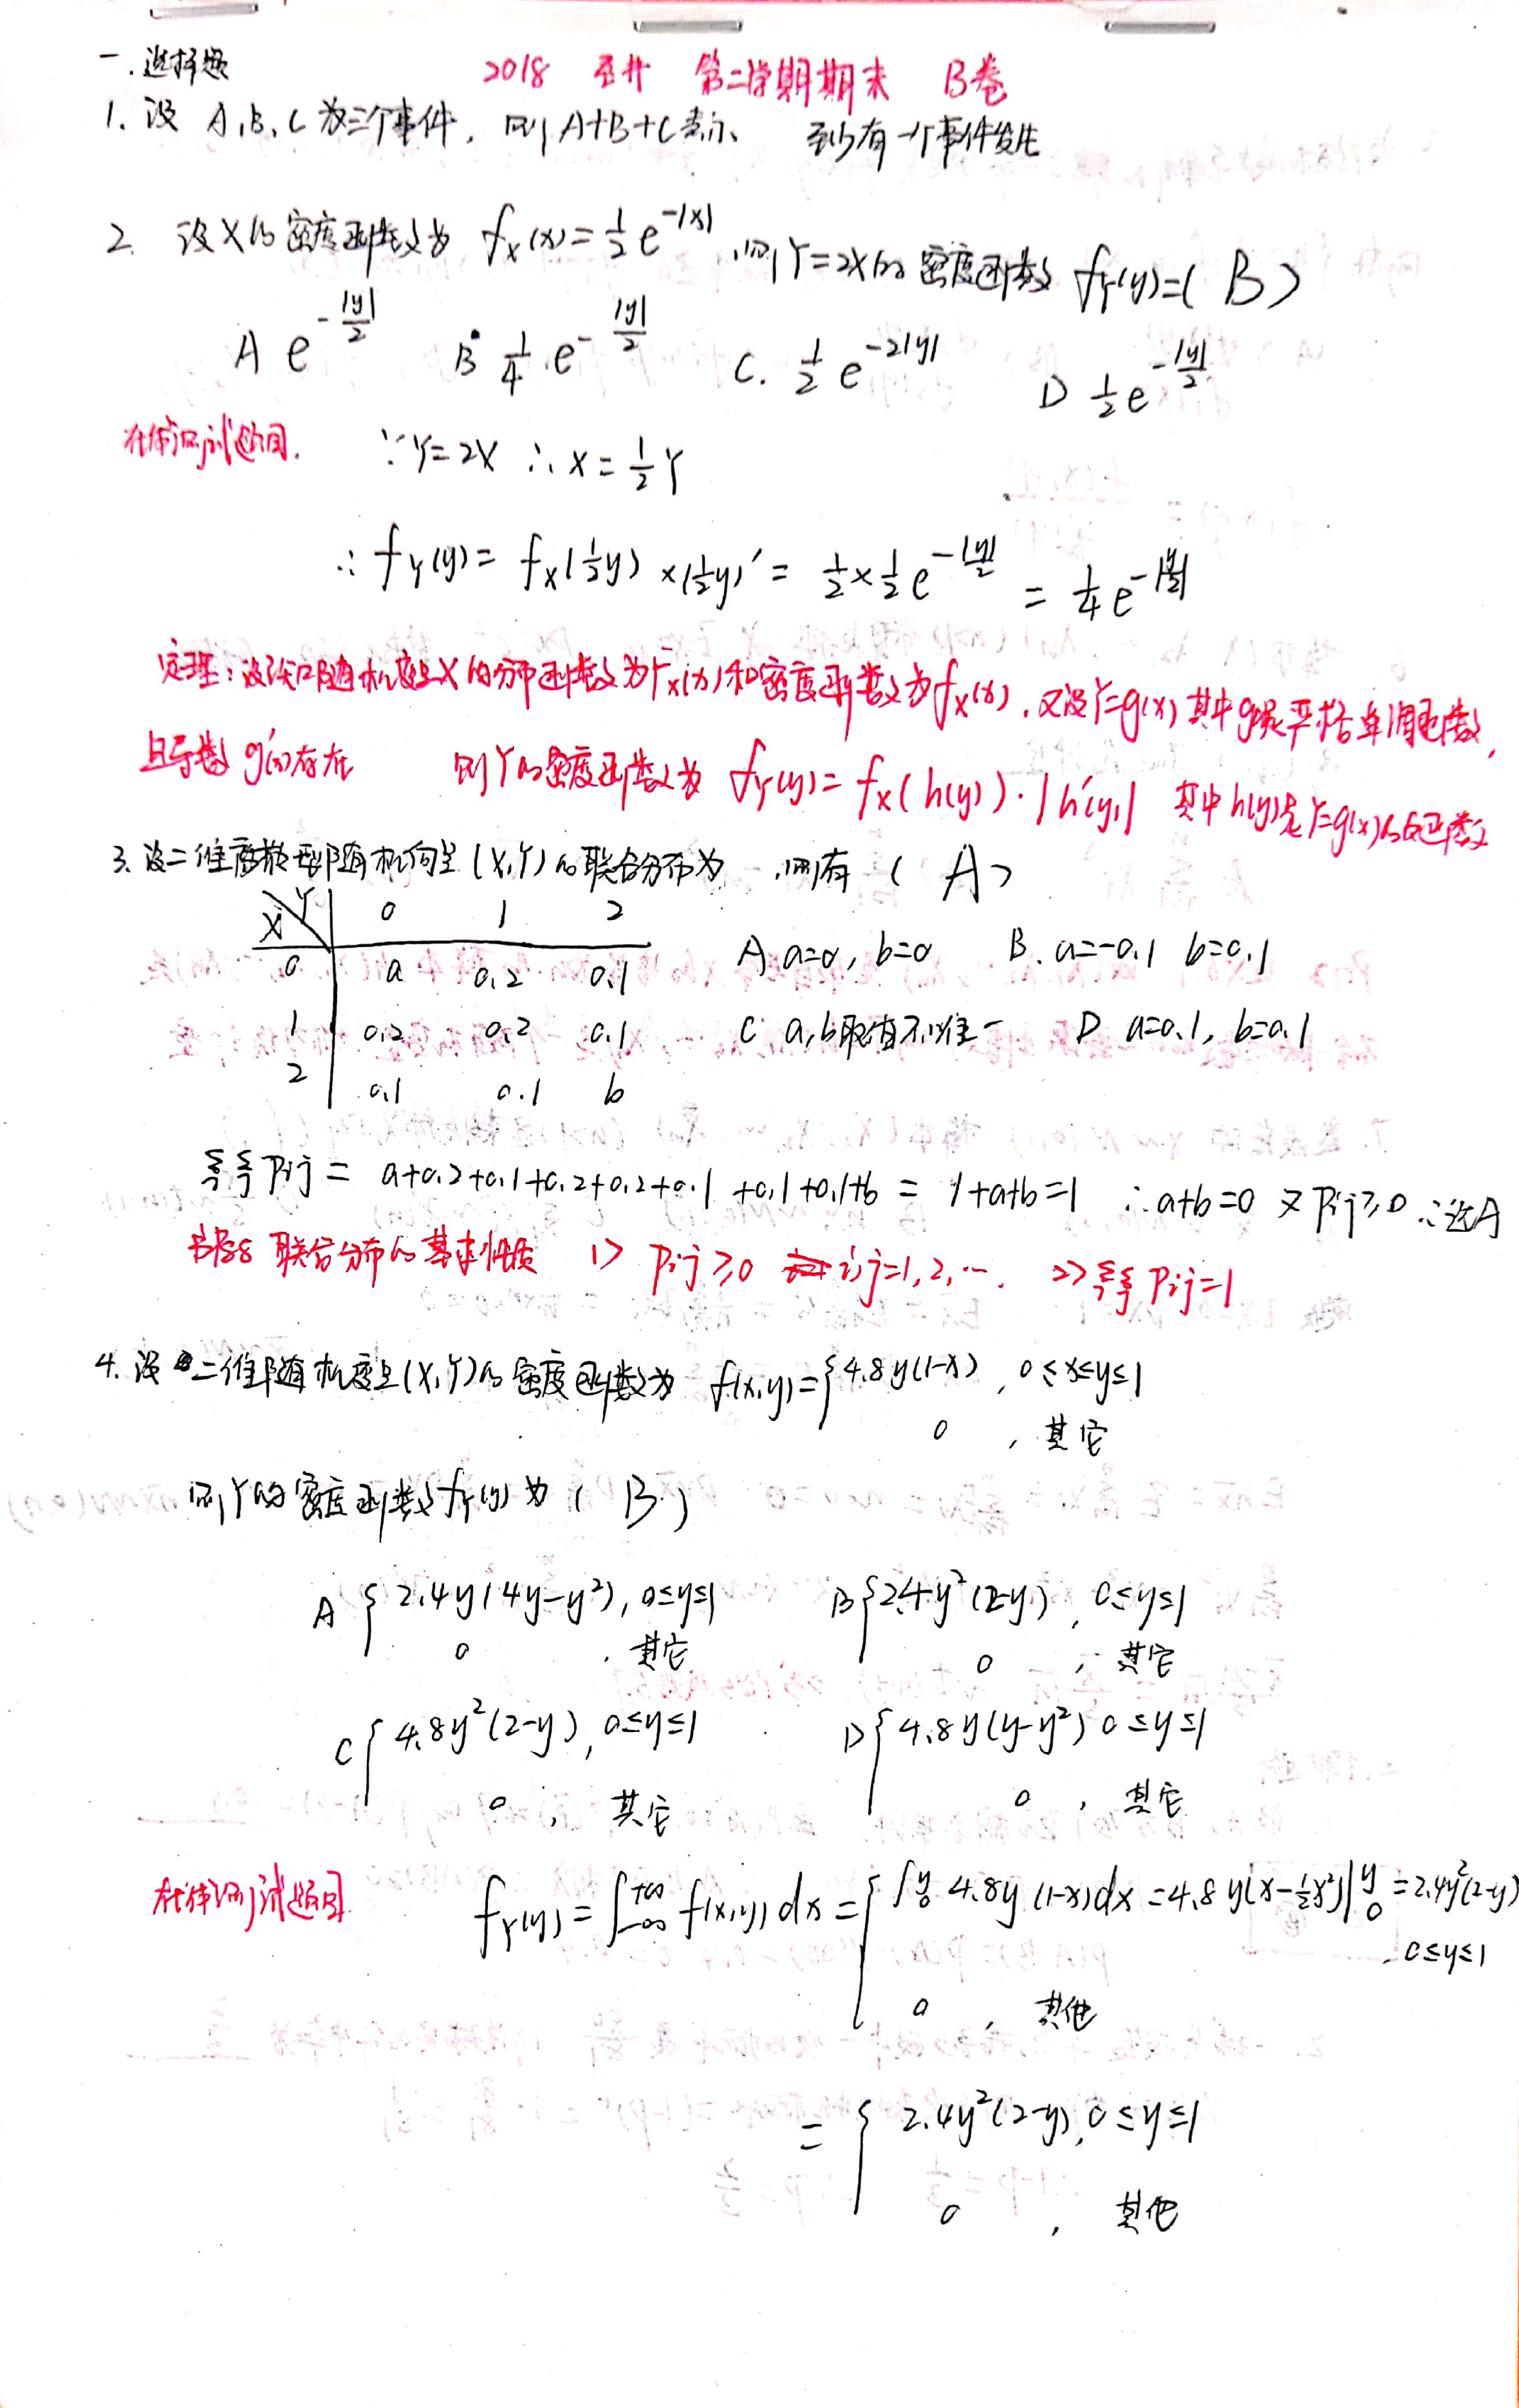 一.选择题
2018 第二学期期末 B卷
1. 设 A,B,C为三个事件, 则A+B+C表示、 至少有一个事件发生
2. 设X的密度函数为 f_X(x)=1/2 e^{-|x|},则Y=2X的密度函数 f_Y(y)=( B )
A e^{-|y|/2} B 1/4 e^{-|y|/2} C. 1/2 e^{-2|y|} D 1/2 e^{-|y|/2}
∵Y=2X ∴X=1/2 Y
∴ f_Y(y)= f_X(1/2 y) ×(1/2 y)′= 1/2×1/2 e^{-|y|/2} = 1/4 e^{-|y/2|}
定理:设 随机变量X的分布函数为F_X(x)和密度函数为f_X(x), 又设Y=g(x)其中g是严格单调函数,
且导数g′(x)存在 则Y的密度函数为 f_Y(y)= f_X(h(y))·|h′(y)| 其中h(y)是Y=g(x)的反函数
3.设二维离散型随机向量(X,Y)的联合分布为 ,则有( A )
X Y 0 1 2
0 a 0.2 0.1
1 0.2 0.2 0.1
2 0.1 0.1 b
A a=0, b=0 B. a=-0.1 b=0.1
C a,b取值不唯一 D a=0.1, b=0.1
ΣΣPij = a+0.2+0.1+0.2+0.2+0.1+0.1+0.1+b = 1+a+b=1 ∴a+b=0 又Pij≥0 ∴选A
联合分布的基本性质 1> Pij≥0 i,j=1,2,…. 2>ΣΣPij=1
4.设二维随机变量(X,Y)的密度函数为 f(x,y)={4.8y(1-x) , 0≤x≤y≤1
0 , 其它
则Y的密度函数f_Y(y)为( B )
A {2.4y(4y-y²), 0≤y≤1
0 , 其它
B {2.4y²(2-y) , 0≤y≤1
0 , 其它
C {4.8y²(2-y), 0≤y≤1
0 , 其它
D {4.8y(y-y²) 0≤y≤1
0 , 其它
f_Y(y)=∫_{-∞}^{+∞} f(x,y)dx={∫_0^y 4.8y(1-x)dx=4.8y(x-1/2x²)|_0^y=2.4y²(2-y)
, 0≤y≤1
0 , 其他
= {2.4y²(2-y), 0≤y≤1
0 , 其他